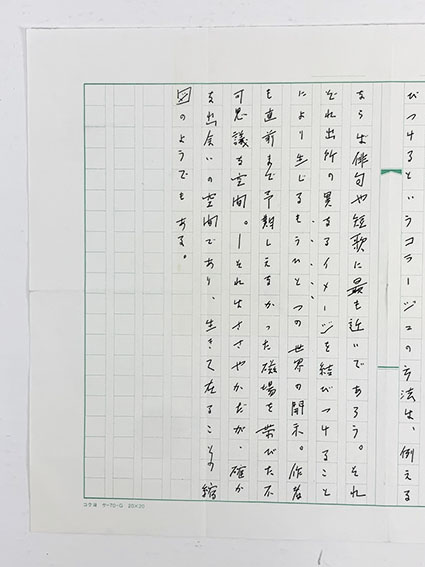 びつけるというコラージュの方法は、例える
ならば俳句や短歌に最も近いであろう。それ
ぞれ出所の異なるイメージを結びつけること
により生じるもうひとつの世界の開示。作者
も直前まで予期しえなかった磁場を帯びた不
可思議な空間。—それはささやかだが、確か
な出会いの空間であり、生きて在ることの縮
図のようでもある。
コクヨ ケ-70-G 20×20